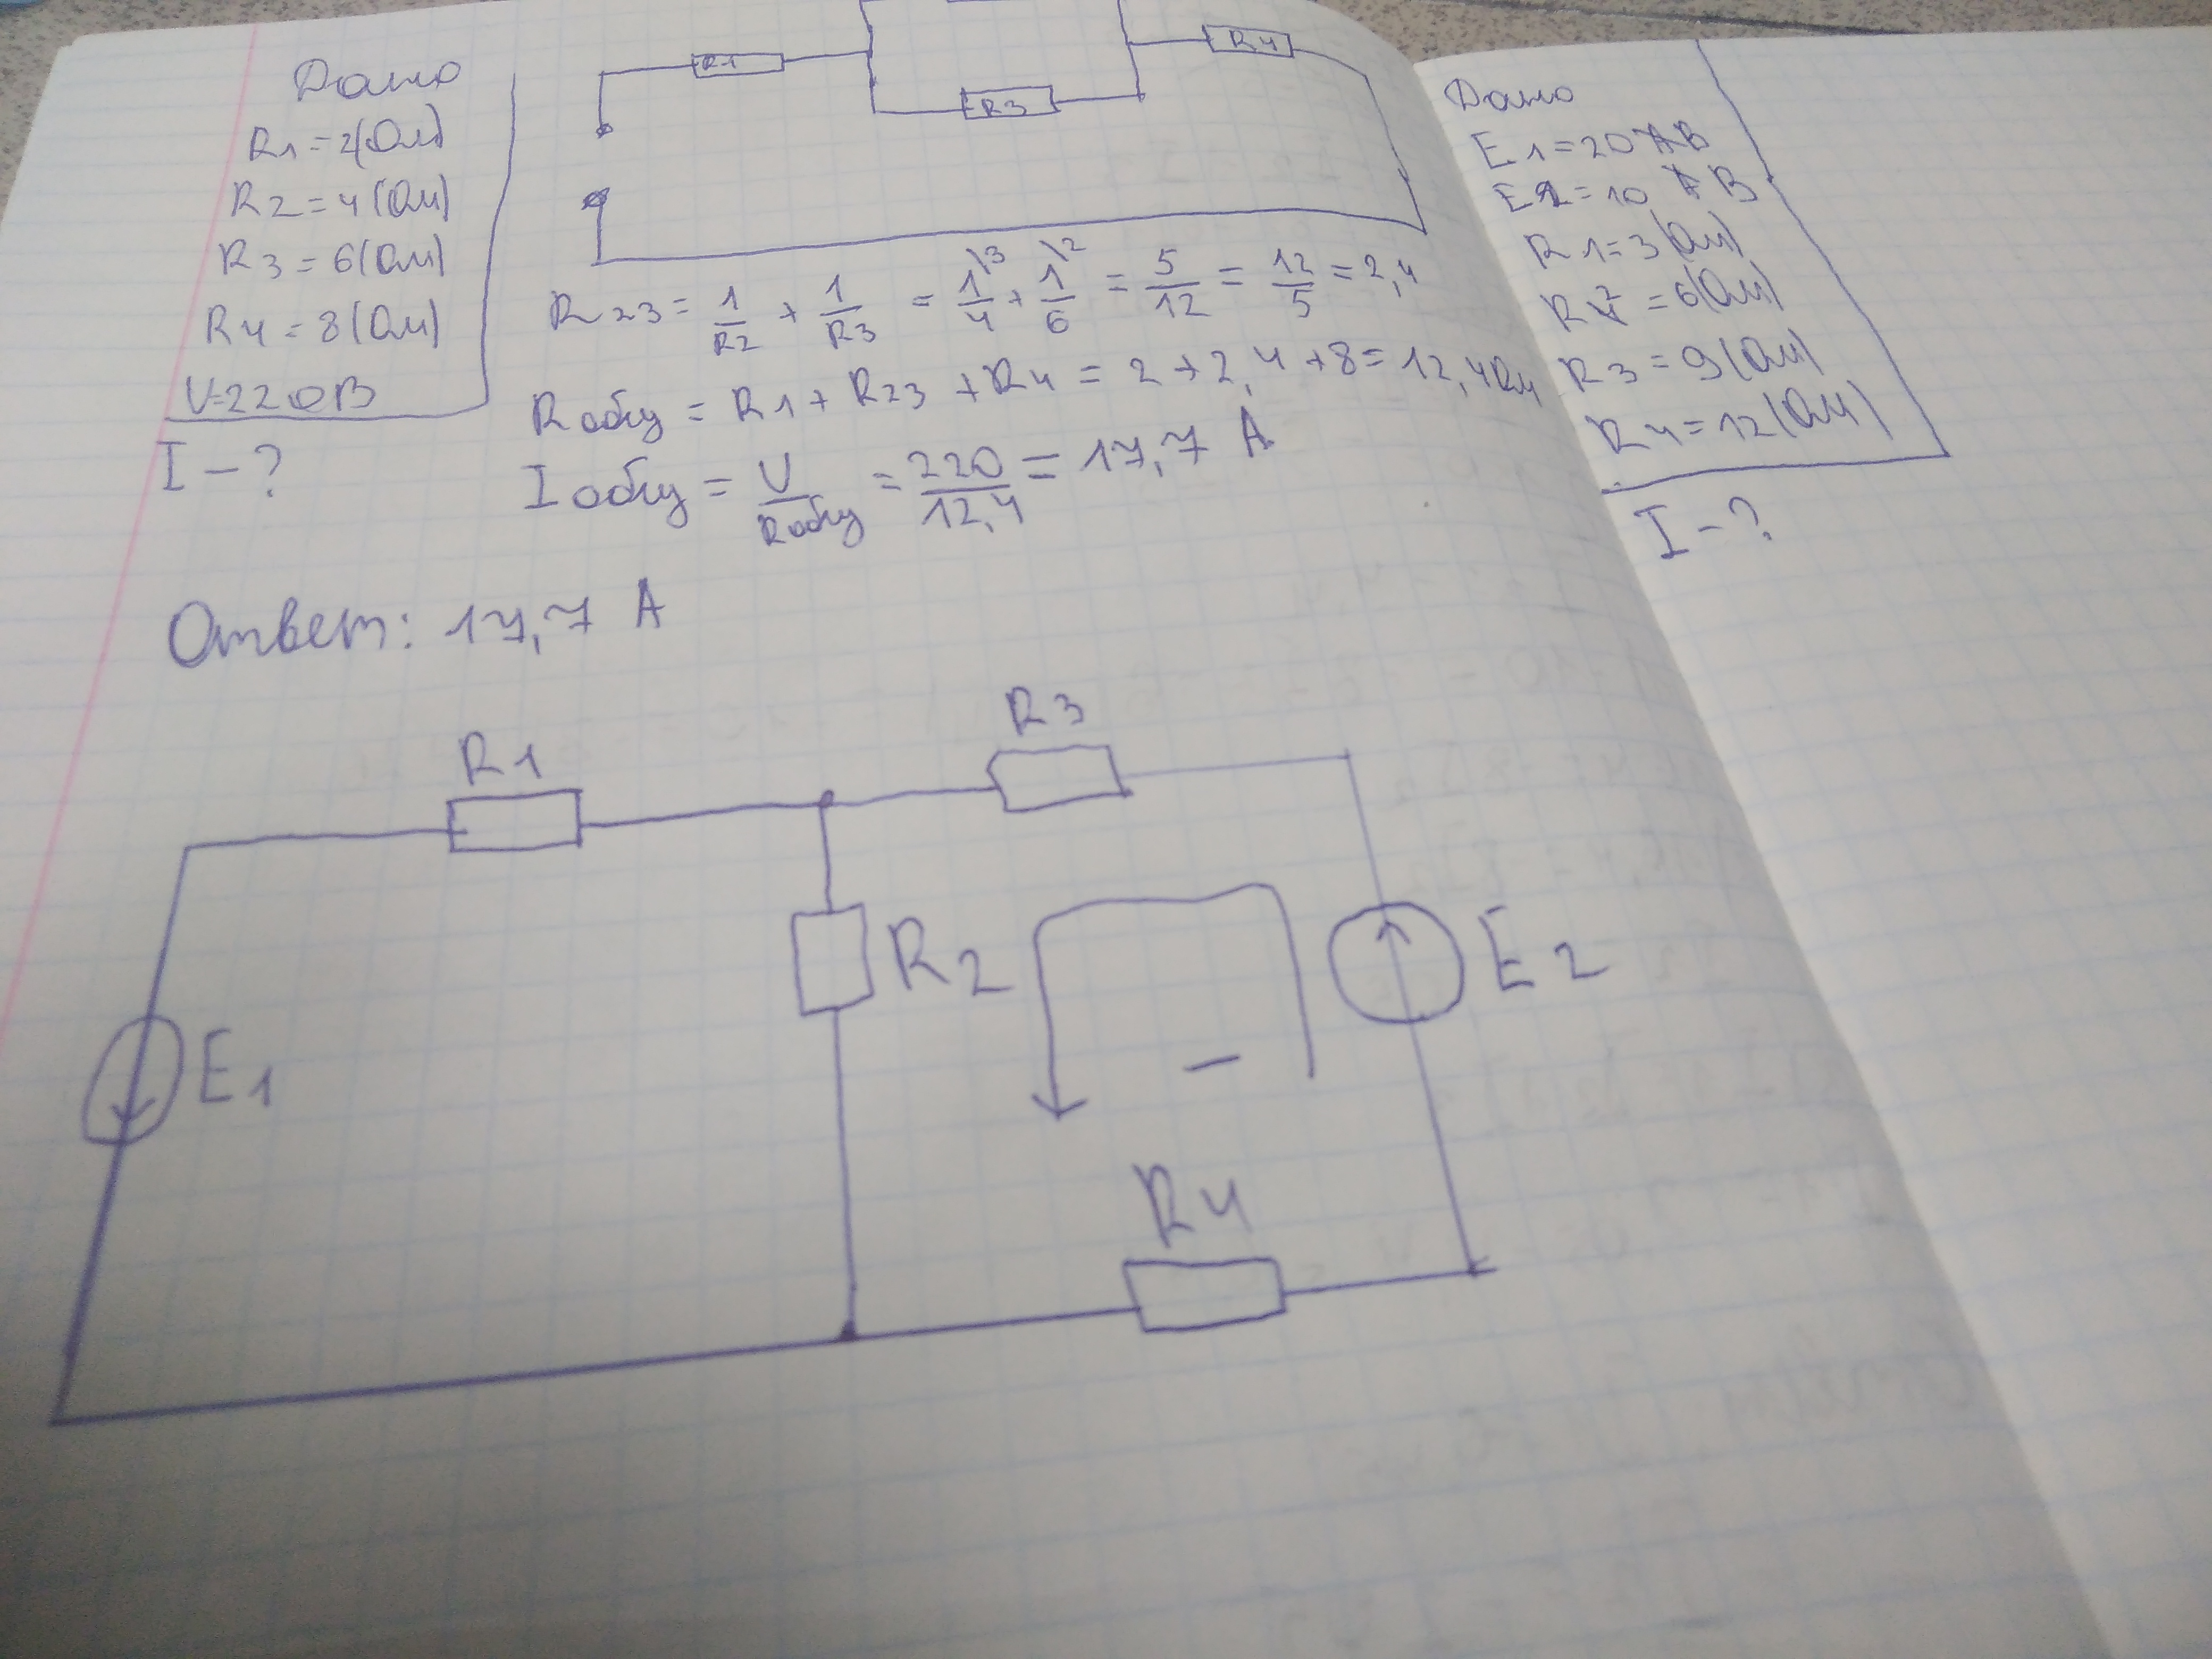 Дано
R1=2(Ом)
R2=4(Ом)
R3=6(Ом)
R4=8(Ом)
U=220В
I-?
R1
R3
R4
R23 = 1/R2 + 1/R3 = 1\3/4 + 1\2/6 = 5/12 = 12/5 = 2,4
Rобщ = R1+R23+R4 = 2+2,4+8=12,4Ом
Iобщ = U/Rобщ = 220/12,4 = 17,7 А
Ответ: 17,7 А
R1
R3
R2
E1
E2
–
R4
Дано
E1=20 В
E2=10 В
R1=3(Ом)
R2=6(Ом)
R3=9(Ом)
R4=12(Ом)
I-?